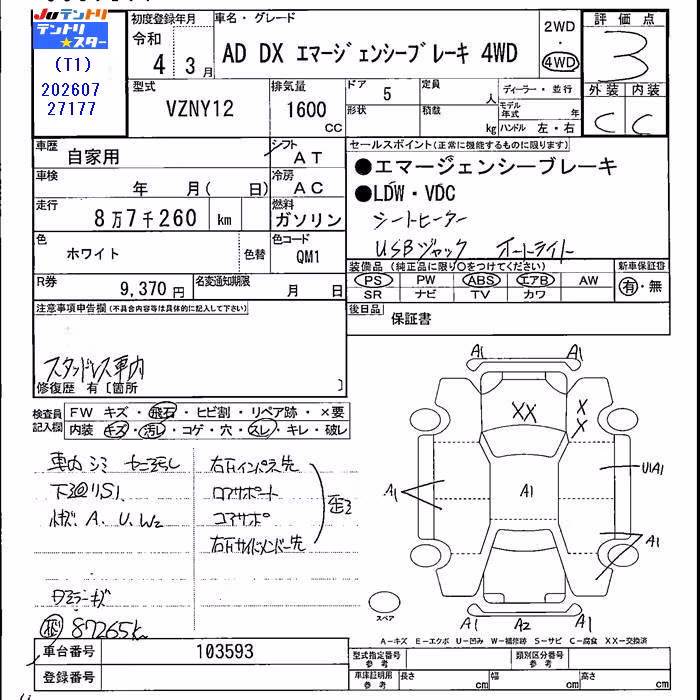 Juテントリ
テントリ
★スター
(T1)
202607
27177
初度登録年月
令和
4 3月
車名・グレード
AD DX エマージェンシーブレーキ 4WD
2WD
・
4WD
評価点
3
外装 内装
C C
型式
VZNY12
排気量
1600
CC
ドア
5
形状
定員
人
積載
kg
ディーラー・並行
モデル年式 年
ハンドル 左・右
車歴
自家用
シフト
AT
車検
年 月( 日)
冷房
AC
走行
8万7千260 km
燃料
ガソリン
色
ホワイト
色替
色コード
QM1
R券
9,370 円
名変通知期限
月 日
セールスポイント(正常に機能するものに限ります)
●エマージェンシーブレーキ
●LDW・VDC
シートヒーター
USBジャック オートライト
装備品(純正品に限り○をつけてください)
PS PW ABS エアB AW
SR ナビ TV カワ
新車保証書
有・無
後日品
保証書
注意事項申告欄(不具合内容等は具体的に記入して下さい)
スタッドレス車内
修復歴 有〔箇所 〕
検査員
記入欄
FW キズ・飛石・ヒビ割・リペア跡・×要
内装 キズ・汚レ・コゲ・穴・スレ・キレ・破レ
車内シミ
下廻りS1
A、U、W2
右Fインパネ先
ロアサポート
コアサポ
右Fサイドメンバー先
歪ミ
ダミラーキズ
87265km
車台番号 103593
登録番号
A1 A1
XX
X
X
U1A1
A1
A1
A1
A1 A2 A1
スペア
A−キズ E−エクボ U−凹み W−補修跡 S−サビ C−腐食 XX−交換済
型式指定番号
参考
類別区分番号
参考
車庫証明用
参考
長さ cm 幅 cm 高さ cm